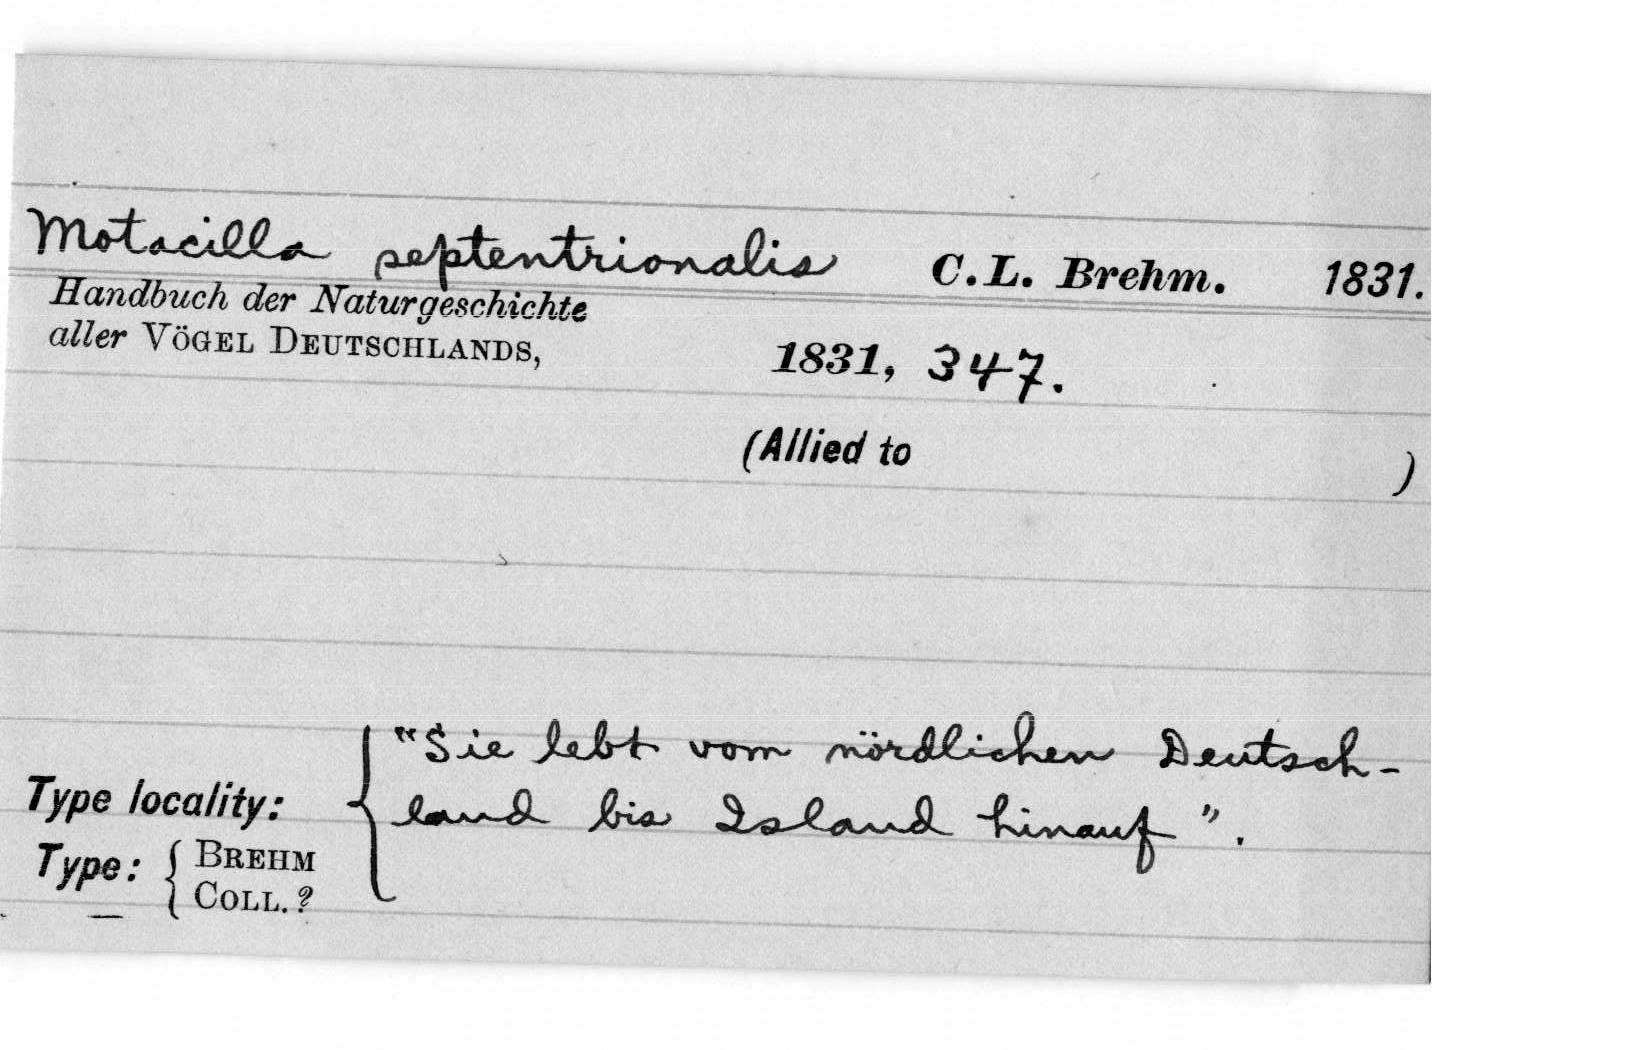 Motacilla septentrionalis C.L. Brehm. 1831.
Handbuch der Naturgeschichte
aller VÖGEL DEUTSCHLANDS, 1831, 347.
(Allied to )
"Sie lebt vom nördlichen Deutsch-
Type locality: land bis Island hinauf".
Type: { BREHM
COLL. ?